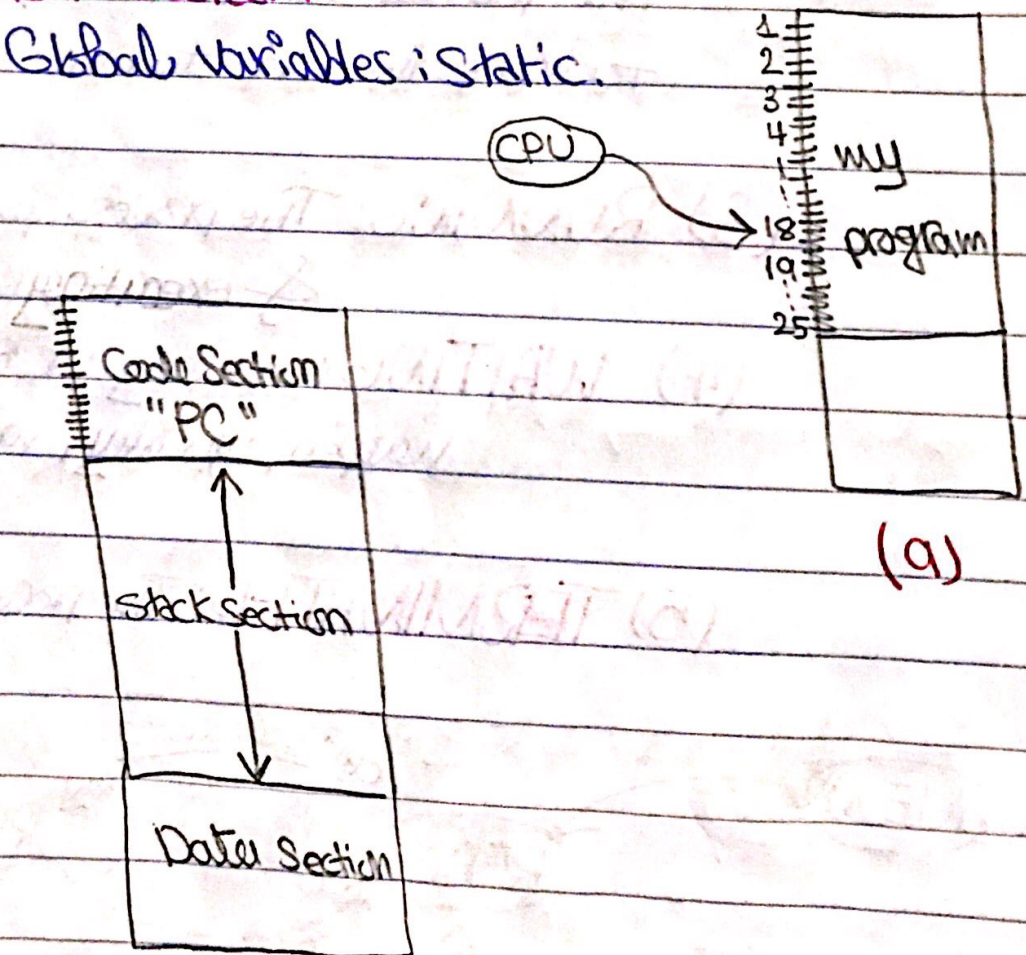 Global variables : Static.
CPU
1
2
3
4
18
19
25
my
program
(a)
Code Section
"PC"
Stack Section
Data Section